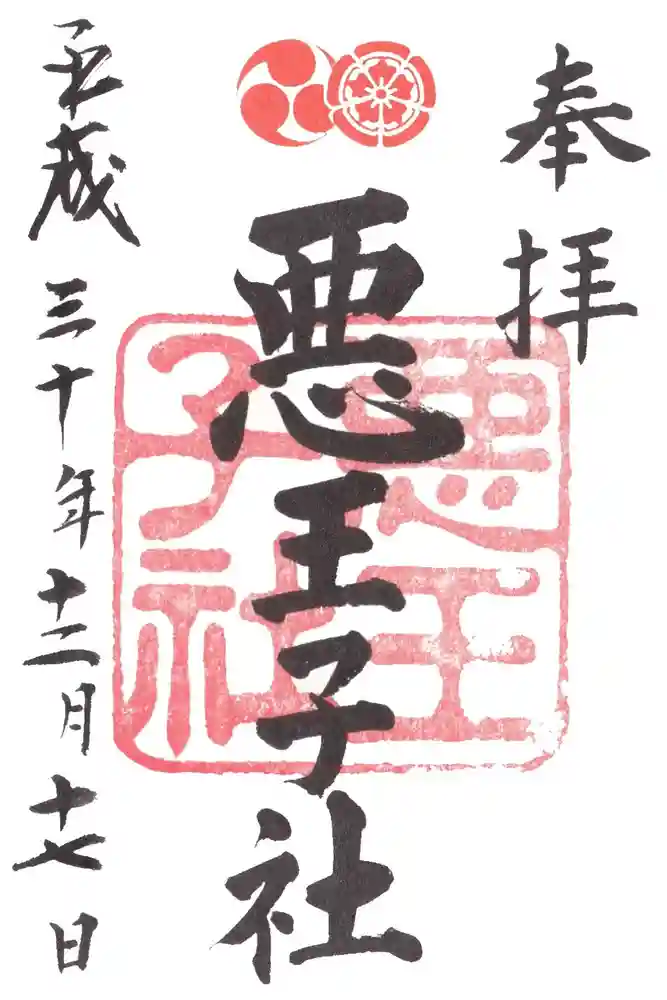 奉拝
悪王子社
悪王子社
平成三十年十二月十七日